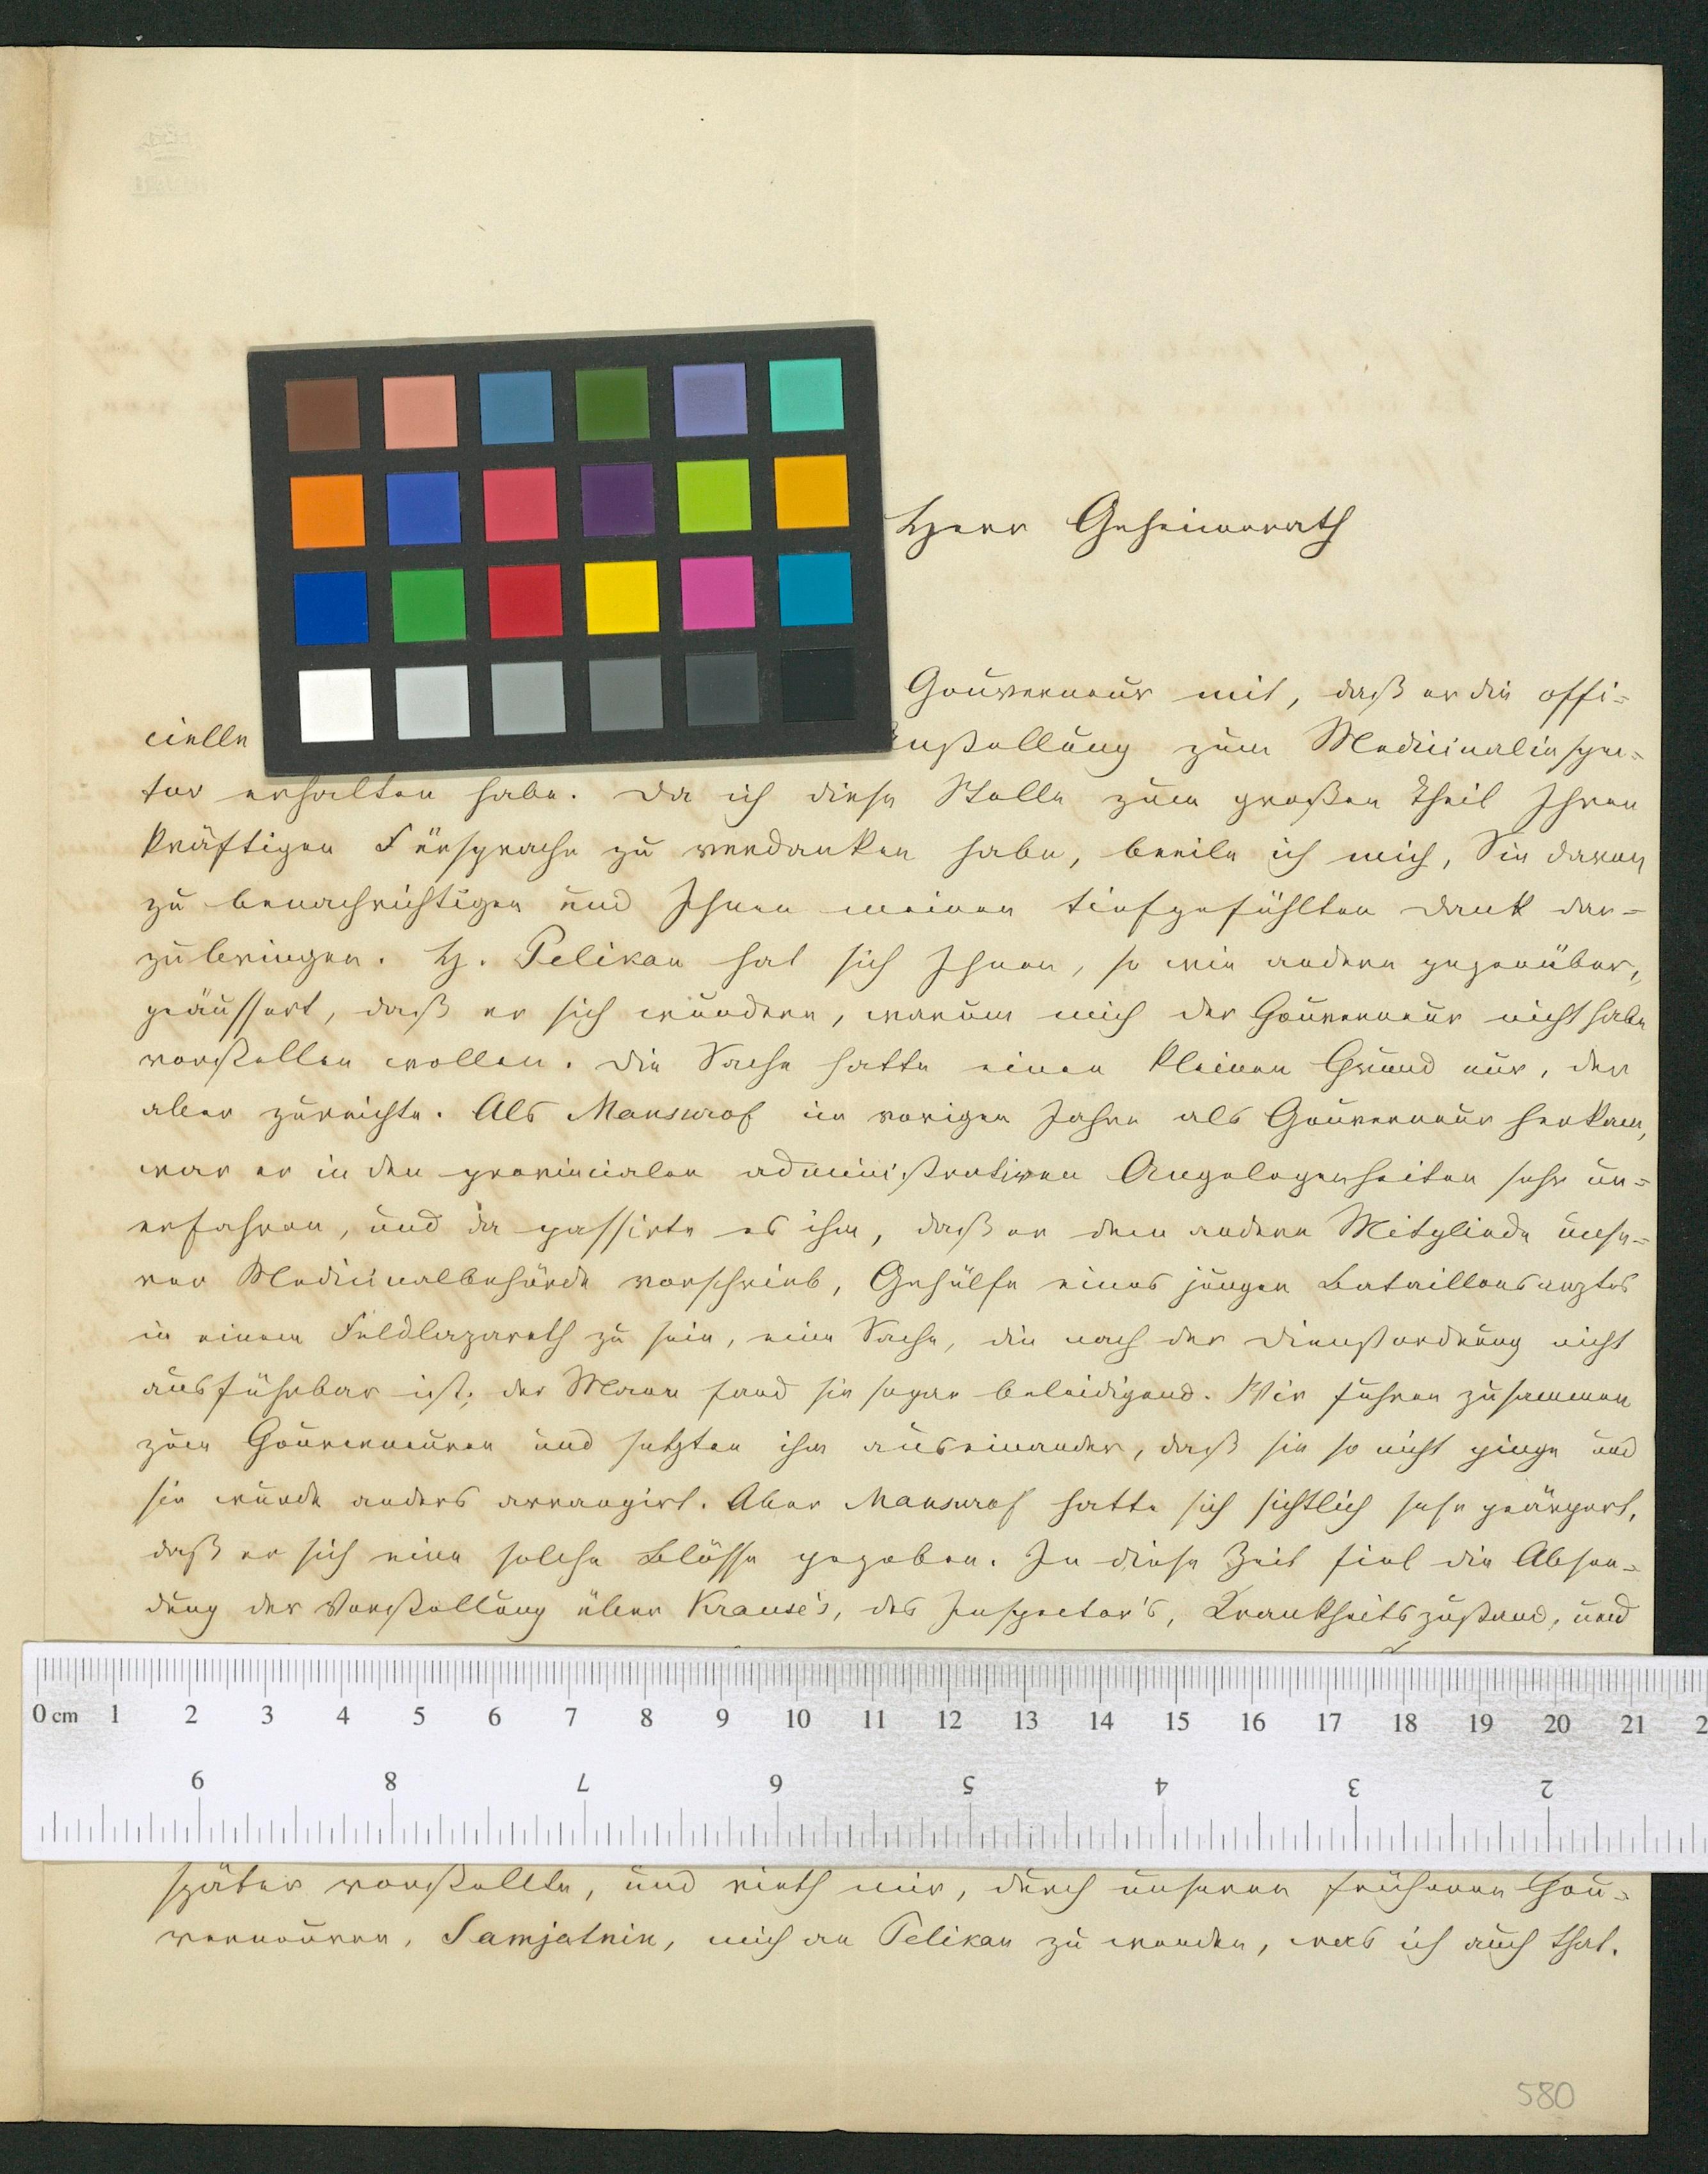 Herr Geheimerath
Gouverneur mit, daß er die offi=
cielle
nstellung zum Medicinalinspec=
tor erhalten habe. Da ich diese Stelle zum großen Theil Ihrer
kräftigen Fürsprache zu verdanken habe, beeile ich mich, Sie davon
zu benachrichtigen und Ihnen meinen tiefgefühlten Dank dar=
zubringen. H. Pelikan hat sich Ihnen, so wie andern gegenüber,
geäussert, daß er sich wundere, warum mich der Gouverneur nicht habe
vorstellen wollen. Die Sache hatte einen kleinen Grund nur, der
aber zureichte. Als Mansurof im vorigen Jahre als Gouverneur herkam,
war er in den provincialen administrativen Angelegenheiten sehr un=
erfahren, und da passirte es ihm, daß er dem andern Mitgliede unse=
rer Medicinalbehörde vorschrieb, Gehülfe eines jungen Bataillonsarztes
in einem Feldlazareth zu sein, eine Sache, die nach der Dienstordnung nicht
ausführbar ist; der Mann fand sie sogar beleidigend. Wir fuhren zusammen
zum Gouverneuren und setzten ihm auseinander, daß sie so nicht ginge und
sie wurde anders arrangirt. Aber Mansurof hatte sich sichtlich sehr geärgert,
daß er sich eine solche Blösse gegeben. In diese Zeit fiel die Absen=
dung der Vorstellung über Krause's, des Inspector's, Krankheitszustand, und
0 cm 1 2 3 4 5 6 7 8 9 10 11 12 13 14 15 16 17 18 19 20 21 2
9 8 7 6 5 4 3 2
später vorstellte, und rieth mir, durch unseren früheren Gou=
verneuren, Samjatnin, mich an Pelikan zu wenden, was ich auch that.
580